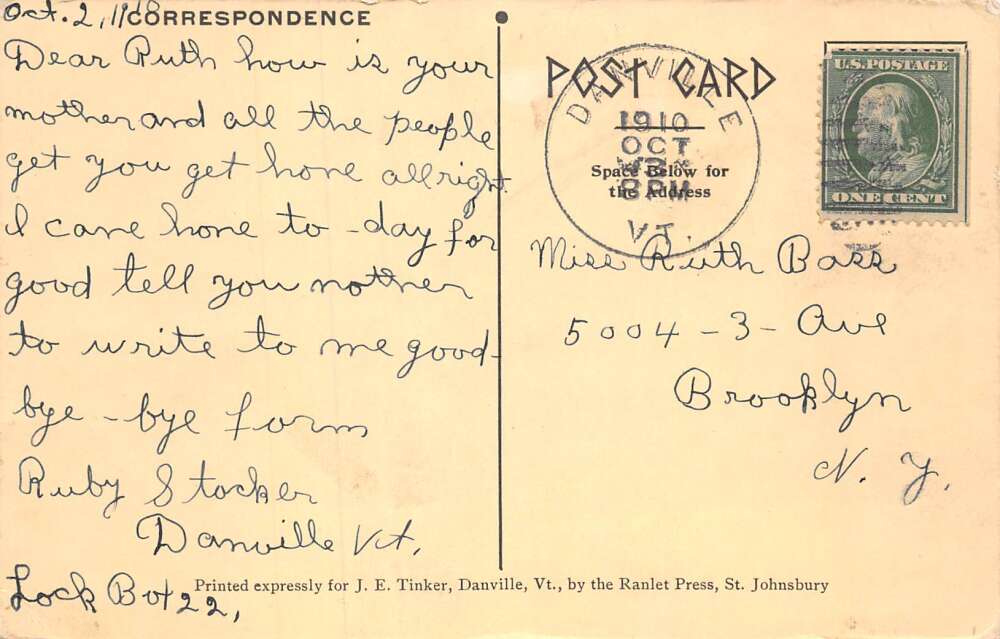 Oct. 2, 19
CORRESPONDENCE
Dear Ruth how is your
mother and all the people
get you get hone allright.
I cane hone to-day for
good tell you nother
to write to me good-
bye-bye form
Ruby Stocker
Danville Vt.
Lock Box 22,
POST CARD
Space Below for
the Address
DANVILLE
1910
OCT
8PM
VT.
U.S. POSTAGE
ONE CENT
Miss Ruth Bass
5004-3-Ave
Brooklyn
N. Y.
Printed expressly for J. E. Tinker, Danville, Vt., by the Ranlet Press, St. Johnsbury